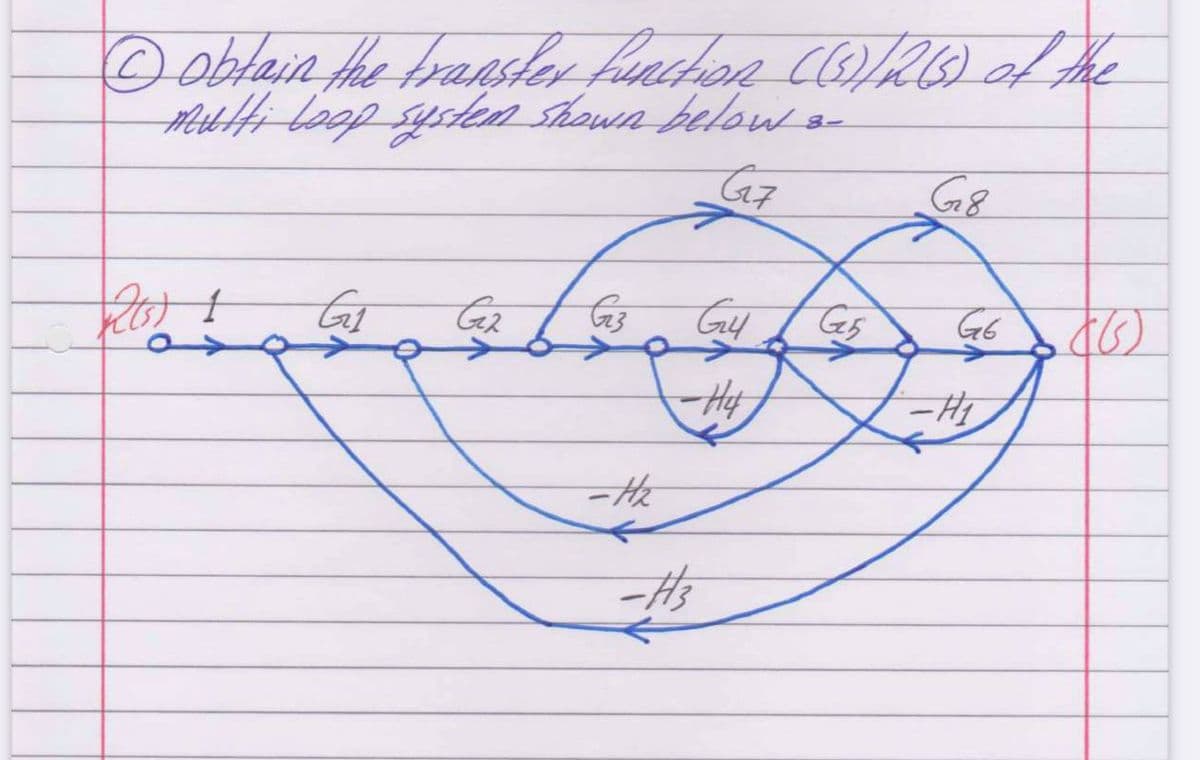 Ⓒ obtain the transfer function C(s)/R(s) of the
multi loop system shown below :-
G7 G8
R(s) 1 G1 G2 G3 G4 G5 G6 C(s)
-H4 -H1
-H2
-H3